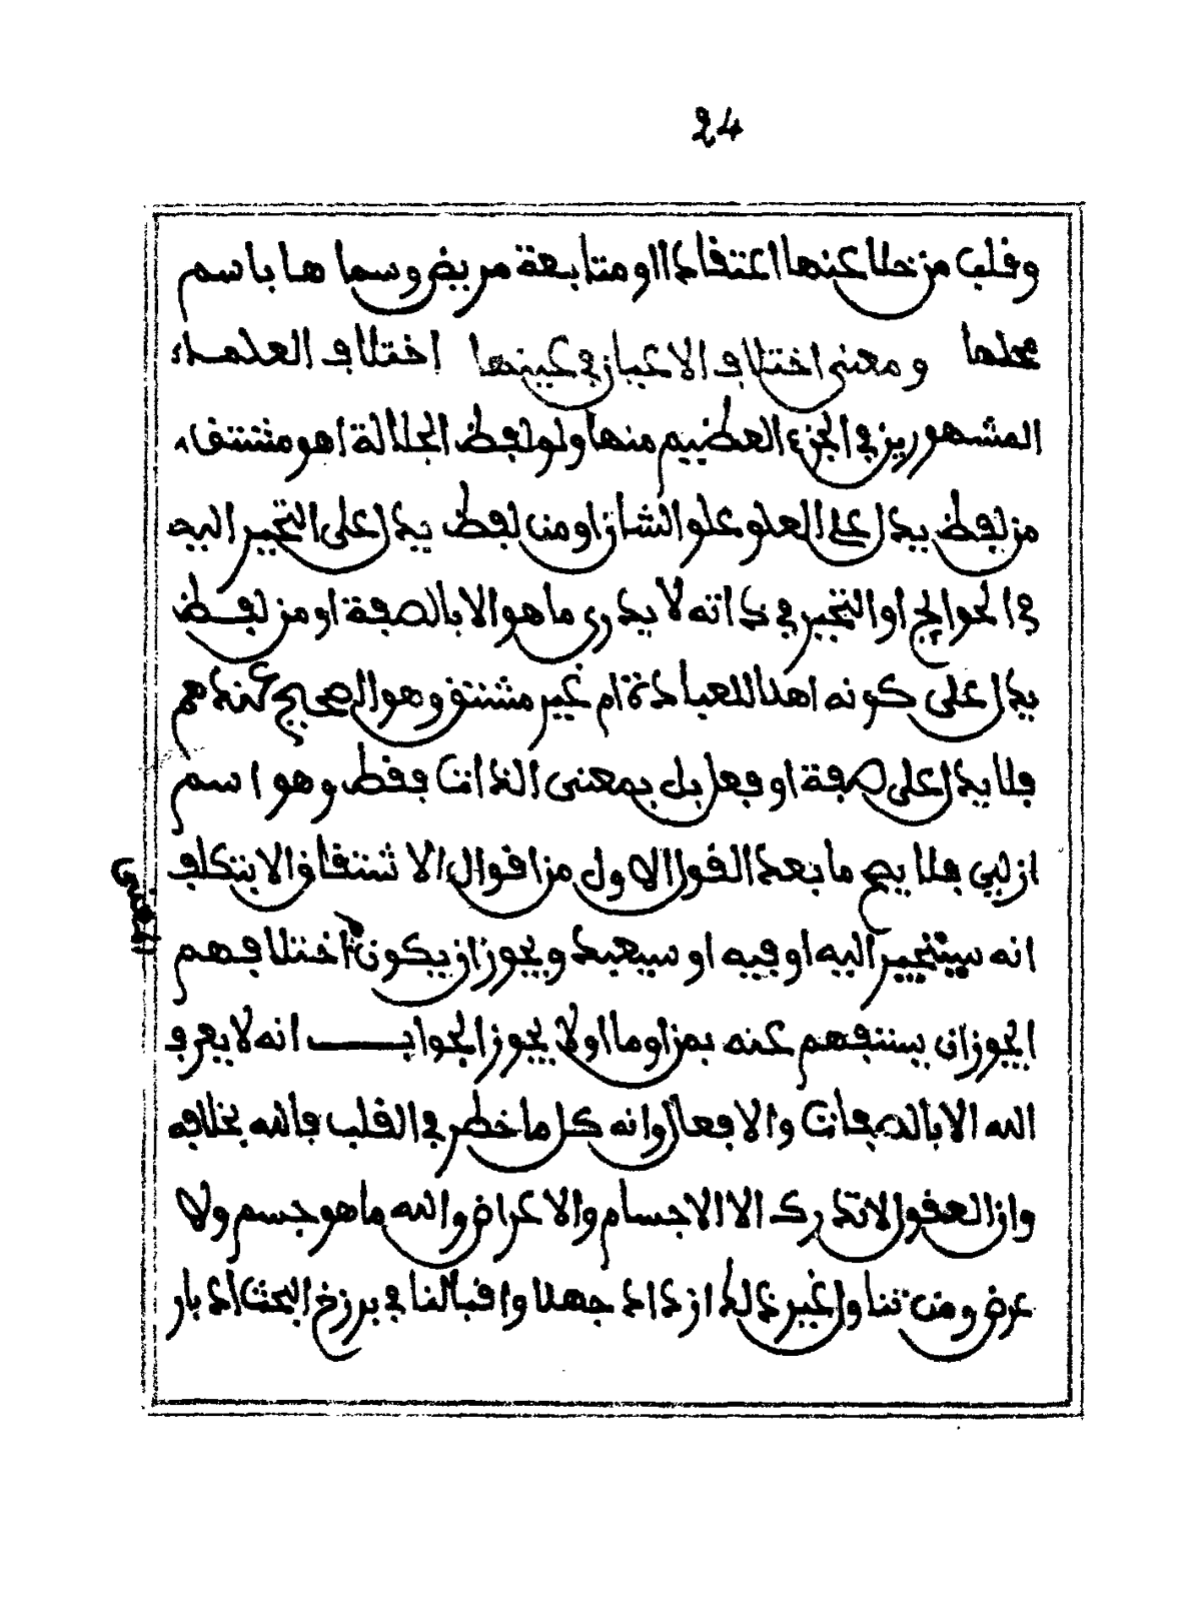 24
وقلب من خلا عنها اعتقادا او متابعة مريض وسماها باسم
محلها ومعنى اختلاف الاعيان في عينها اختلاف العلماء
المشهورين في الجزء العظيم منها ولو لفظ الجلالة اهو مشتق
من لفظ يدل على العلو علو الشان او من لفظ يدل على التحير اليه
في الحوائج او التحير في ذاته لا يدرى ما هو الا بالصفة او من لفظ
يدل على كونه اهلا للعبادة ام غير مشتق وهو الصحيح عندهم
فلا يدل على صفة او فعل بل بمعنى الذات فقط وهو اسم
ازلي فلا يصح ما بعد القول الاول من اقوال الاشتقاق الا بتكلف
انه سيتحير اليه او فيه او سيعبد ويجوز ان يكون اختلافهم
المعنى
ايجوز ان يستفهم عنه بمن او ما اولا يجوز الجواب انه لا يعرف
الله الا بالصفات والافعال وانه كل ما خطر في القلب فالله بخلافه
وان العقول لا تدرك الا الاجسام والاعراض والله ما هو جسم ولا
عرض ومن تناول غير ذلك ازداد جهلا واقبالنا في برزخ البحث ادبار